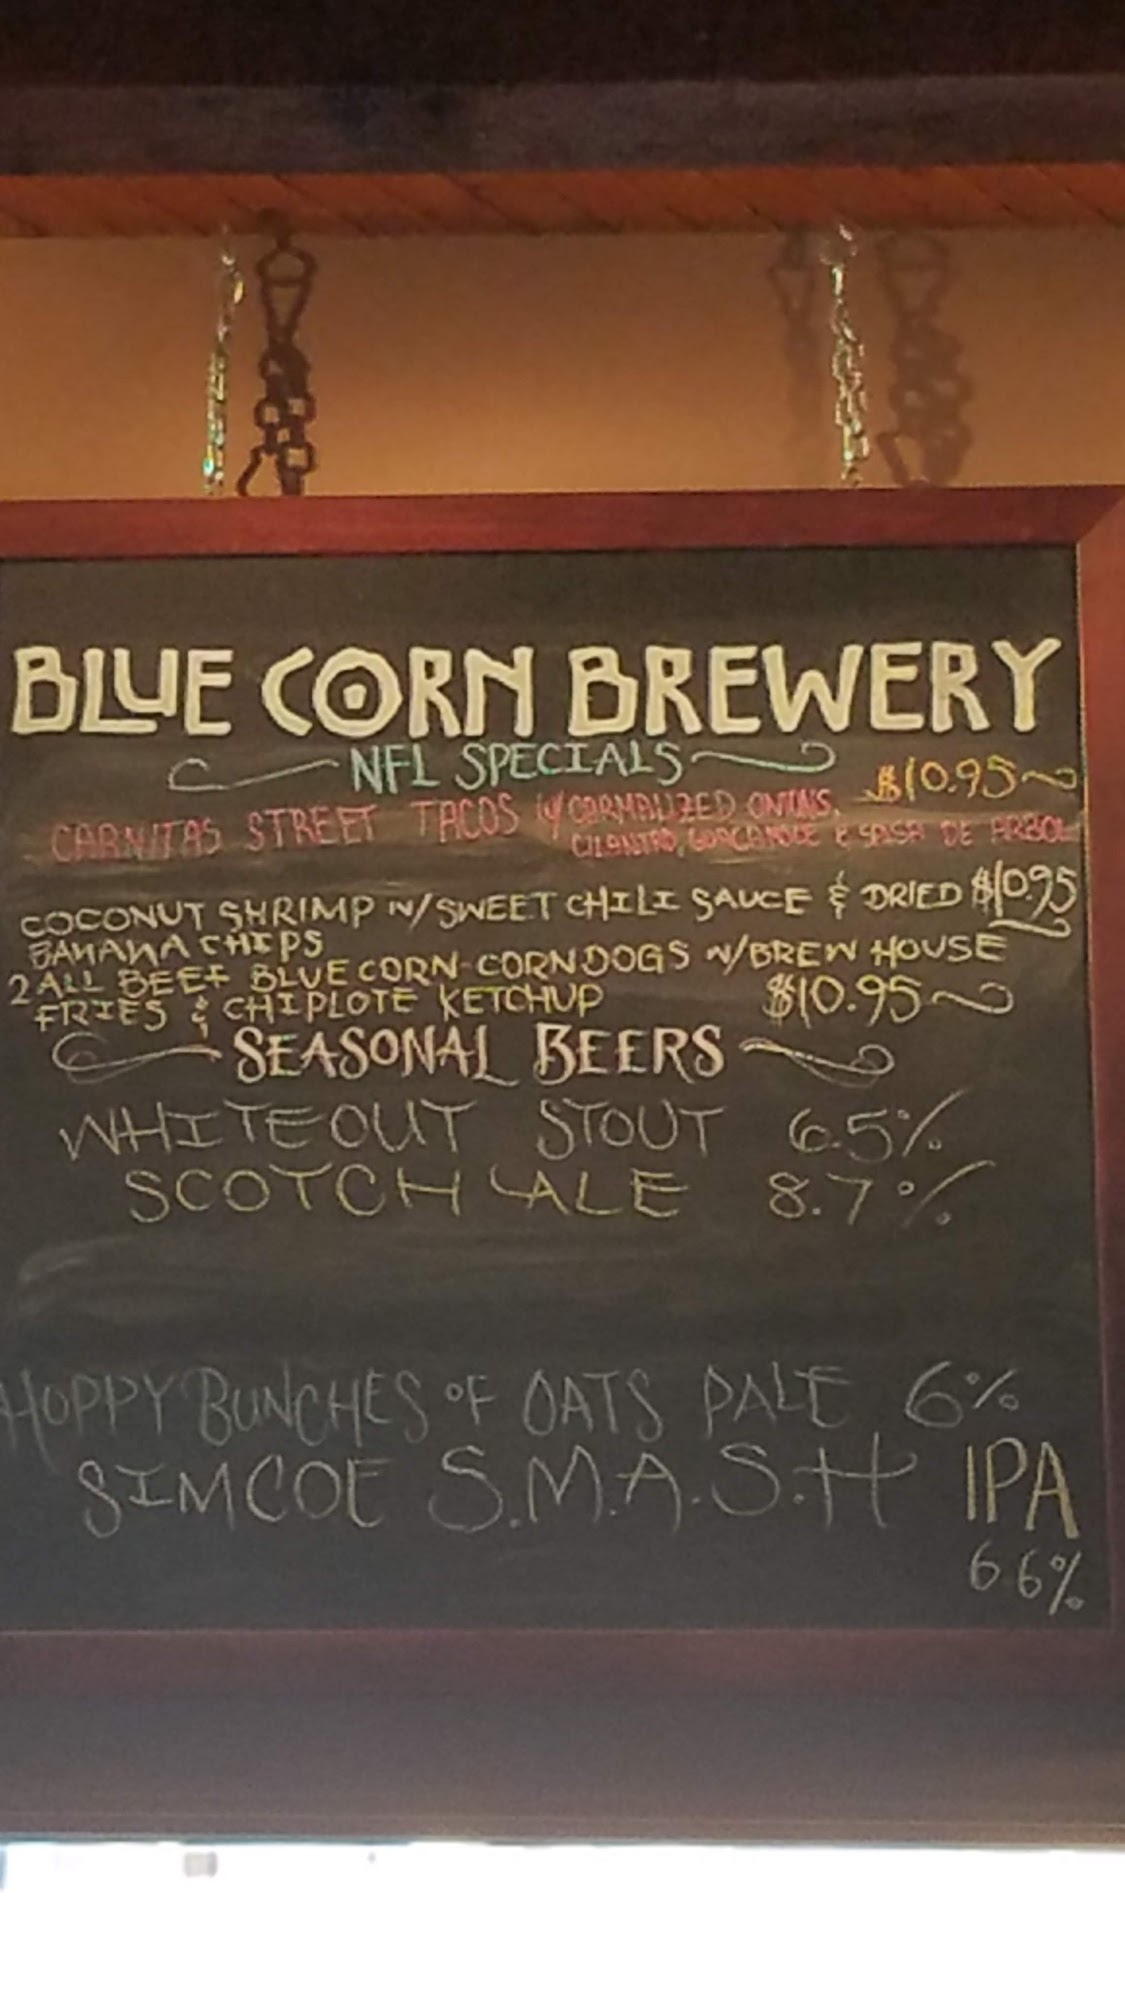 BLUE CORN BREWERY
NFL SPECIALS
$10.95
CARNITAS STREET TACOS W/ CARMALIZED ONIONS,
CILANTRO, GUACAMOLE & SALSA DE ARBOL
COCONUT SHRIMP W/ SWEET CHILI SAUCE & DRIED $10.95
BANANA CHIPS
2 ALL BEEF BLUE CORN-CORNDOGS W/ BREW HOUSE
FRIES & CHIPLOTE KETCHUP $10.95
SEASONAL BEERS
WHITEOUT STOUT 6.5%
SCOTCH ALE 8.7%
HOPPY BUNCHES OF OATS PALE 6%
SIMCOE S.M.A.S.H IPA
6.6%